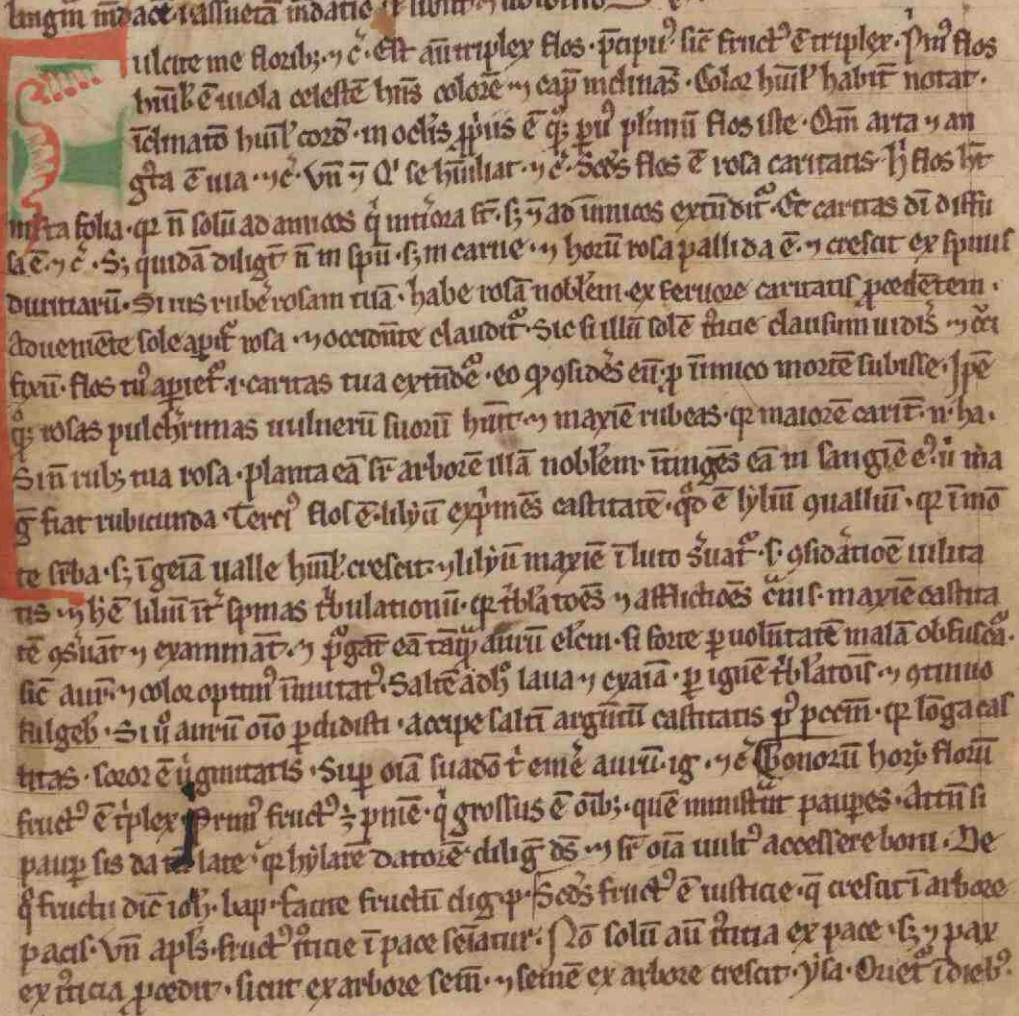 ulcite me florib; ⁊ c̄. Est aū triplex flos. p̄cipuꝰ sic̄ fructꝰ ē triplex. Pͥmꝰ flos
humil̄ ē uiola celestē hn̄s colorē ⁊ cap̄ inclinās. Color humil̄ habit̄ notat.
īclinatō humil̄ cord̄. in ocl̓is ꝓpͥis ē q̄; puꝰ pl̓imū flos iste. Qm̄ arta ⁊ an
gͭta ē uia. ⁊c̄. Vn̄ ⁊ Qͥ se humiliat. ⁊ c̄. Scd̓s flos ē rosa caritatis. h̓ flos ht̄
folia. qr n̄ solū ad amicos q̄ int̓iora st̄. s; ⁊ ad inimicos extūdit̄. Et caritas dī diffu
sa ē. ⁊ c̄. S; quidā diligt̄ n̄ in spū. s; in carne. ⁊ horū rosa pallida ē. ⁊ crescit ex spinis
diuitiarū. Si uis rubē rosam tuā. habe rosā nobl̓em. ex feruore caritatis ꝓcedētem.
Adueniēte sole apit̄ rosa. ⁊ occidēte claudit̄. Sic si illū solē iusticie clausum uid̓is ⁊ cͨci
fixū. flos tuꝰ apiet̄. i. caritas tua extēd̄. eo ꝙ ꝯsid̓es eū. ꝓ inimico mortē subisse. Ip̄e
q̄; rosas pulcherrimas uulnerū suorū hūit. ⁊ maxīe rubeas. qr maiorē carit̄. n̄. ha.
Si n̄ rub; tua rosa. planta eā sr̄ arborē illā nobl̓em. ⁊ tinges eā in sangīe eꝰ. ut ma
gͣ fiat rubicunda. Terciꝰ flos ē. lilyū expͥmēs castitatē. qd̓ ē lyliū ꝯualliū. qr ī mō
te suꝑba. s; ī geīam ualle humil̄ crescit. ⁊ lilyū maxīe ī luto s̓uat̄. s. ꝯsid̓atiōe uilita
tis. ⁊ h̓ ē liliū īt̓ spinas tͥbulationū. qr tͥbl̓atōes ⁊ afflictiōes carnis. maxīe castita
tē ꝯs̓uāt ⁊ examināt. ⁊ pͥgāt eā tāqͣ aurū el̓cm. si forte ꝑ uolūtatē malā obfuscā.
sic̄ aurū. ⁊ color optimꝰ īmutatꝰ. Saltē adh̓ laua ⁊ exaīa. ꝑ ignē tͥbl̓atoīs. ⁊ ꝯtinuo
fulgeb̄. Si u̓ aurū oīo ꝑdidisti. accipe saltī argētū castitatis pꝰ pccm̄. qr lōga cas
titas. soror ē uͥginitatis. Suꝑ oīa suadō tͥ em̓e aurū. ig. ⁊ c̄. Bonorū horꝝ florū
fructꝰ ē tͥplex. Prīmꝰ fructꝰ ÷ pn̄ie. qͥ grossus ē oīb;. quē ministr̄t paupes. Attn̄ si
pauꝑ sis da late. qr hylarē datorē. diliḡ ds̄. ⁊ sr̄ oīa uultꝰ accessere boni. De
qͦ fructu dic̄ ioh̄. bap. facite fructū dig. p. Scd̓s fructꝰ ē iusticie. q̄ crescit ī arbore
pacis. Vn̄ apl̓s. fructꝰ iusticie ī pace semīatur. Nō solū aū iusticia ex pace. s; ⁊ pax
ex iusticia ꝓcedit. sicut ex arbore sem̄. ⁊ semē ex arbore crescit. ysa. Oriet̄ ī diebꝰ.